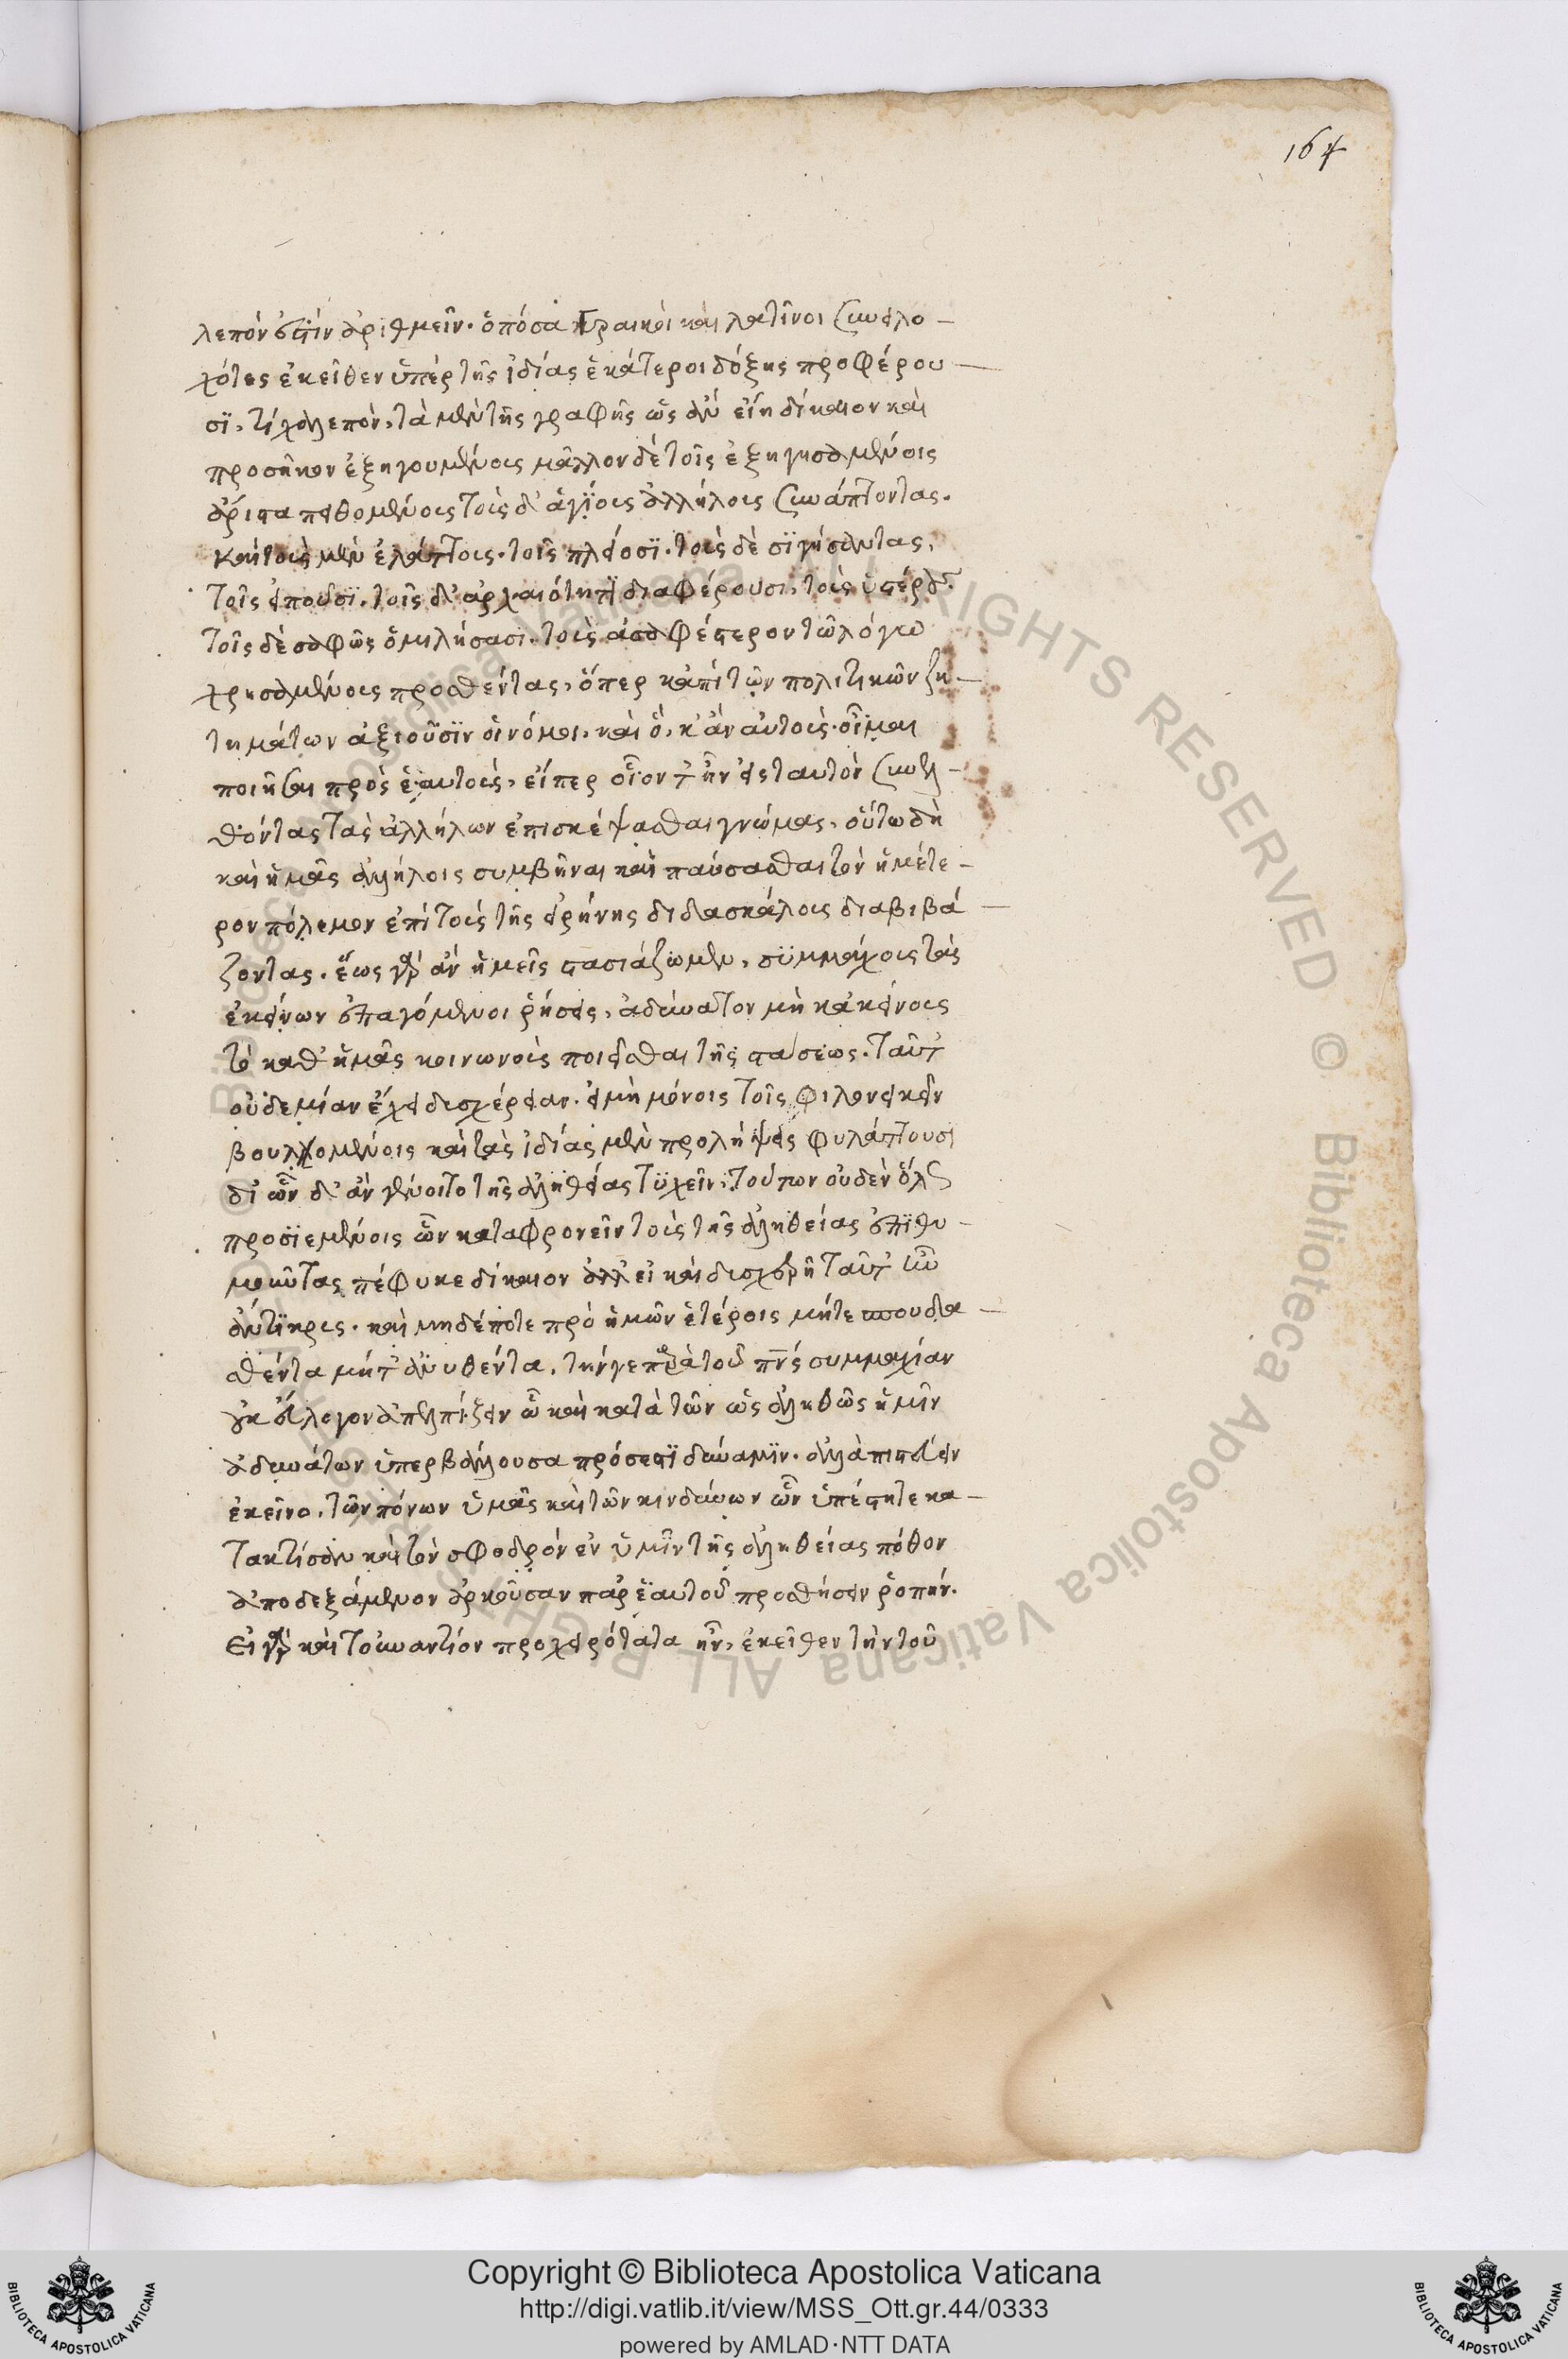 164
λεπόν ἐστιν ἀριθμεῖν. ὁπόσα Γραικοὶ καὶ λατῖνοι συνειλο-
χότες ἐκεῖθεν ὑπὲρ τῆς ἰδίας ἑκάτεροι δόξης προφέρου-
σϊ, τί χαλεπὸν, τὰ μὲν τῆς γραφῆς ὡς ἂν εἴη δίκαιον καὶ
προσῆκον ἐξηγουμένοις μᾶλλον δὲ τοῖς ἐξηγησαμένοις
ἄριστα πειθομένοις τοὺς δ' ἁγίους ἀλλήλοις συνάπτοντας.
καὶ τοὺς μὲν ἐλάττους. τοῖς πλείοσϊ. τοὺς δὲ σϊγήσαντας,
τοῖς εἰποῦσϊ. τοῖς δ' ἀρχαιότητϊ διαφέρουσι, τοὺς ὑστέρους
τοῖς δὲ σαφῶς ὁμιλήσασι. τοὺς ἀσαφέστερον τῶ λόγω
χρησαμένους προσθέντας, ὅπερ κἀπὶ τῶν πολιτικῶν ζη-
τημάτων ἀξιοῦσϊν οἱ νόμοι, καὶ ὃ, κ' ἂν αὐτοὺς οἶμαι
ποιῆσαι πρὸς ἑαυτοὺς, εἴπερ οἷον τ' ἦν εἰς ταυτὸν συνελ-
θόντας τὰς ἀλλήλων ἐπισκέψασθαι γνώμας, οὕτω δὴ
καὶ ἡμᾶς ἀλλήλοις συμβῆναι καὶ παύσασθαι τὸν ἡμέτε-
ρον πόλεμον ἐπὶ τοὺς τῆς εἰρήνης διδασκάλους διαβιβά-
ζοντας. ἕως γὰρ ἂν ἡμεῖς στασιάζωμεν, συμμάχους τὰς
ἐκείνων ἐπαγόμενοι ῥήσεις, ἀδύνατον μὴ κἀκείνους
τὸ καθ' ἡμᾶς κοινωνοὺς ποιεῖσθαι τῆς στάσεως. ταῦτ'
οὐδεμίαν ἔχει δυσχέρειαν. εἰ μὴ μόνοις τοῖς φιλονεικεῖν
βουλομένοις καὶ τὰς ἰδίας μὲν προλήψεις φυλάττουσι
δι' ὧν δ' ἂν γένοιτο τῆς ἀληθείας τϋχεῖν, τούτων οὐδὲν ὅλως
προσϊεμένοις ὧν καταφρονεῖν τοὺς τῆς ἀληθείας ἐπιθυ-
μοῦντας πέφυκε δίκαιον ἀλλ' εἰ καὶ δυσχερῆ ταῦτ' ἦν
ἄντϊκρυς. καὶ μηδέποτε πρὸ ἡμῶν ἑτέροις μήτε σπουδα-
σθέντα μήτ' ἀνυσθέντα. τήν γε παρὰ τοῦ πνς συμμαχίαν
οὐκ εὔλογον ἀπελπίζειν ᾧ καὶ κατὰ τῶν ὡς ἀληθῶς ἡμῖν
ἀδυνάτων ὑπερβάλλουσα πρόσεστϊ δύναμϊν. ἀλλὰ πιστεύειν
ἐκεῖνο. τῶν πόνων ὑμᾶς καὶ τῶν κινδύνων ὧν ὑπέστητε κα-
τακτίσαν καὶ τὸν σφοδρὸν ἐν ὑμῖν τῆς ἀληθείας πόθον
ἀποδεξάμενον ἀρκοῦσαν παρ' ἑαυτοῦ προσθήσειν ῥοπήν.
Εἰ γὰρ καὶ τοὐναντίον προχειρότατα ἦν, ἐκεῖθεν τὴν τοῦ
Biblioteca Apostolica Vaticana ALL RIGHTS RESERVED © Biblioteca Apostolica Vaticana ALL RIGHTS RESERVED ©
Copyright © Biblioteca Apostolica Vaticana
http://digi.vatlib.it/view/MSS_Ott.gr.44/0333
powered by AMLAD·NTT DATA
BIBLIOTECA APOSTOLICA VATICANA
BIBLIOTECA APOSTOLICA VATICANA